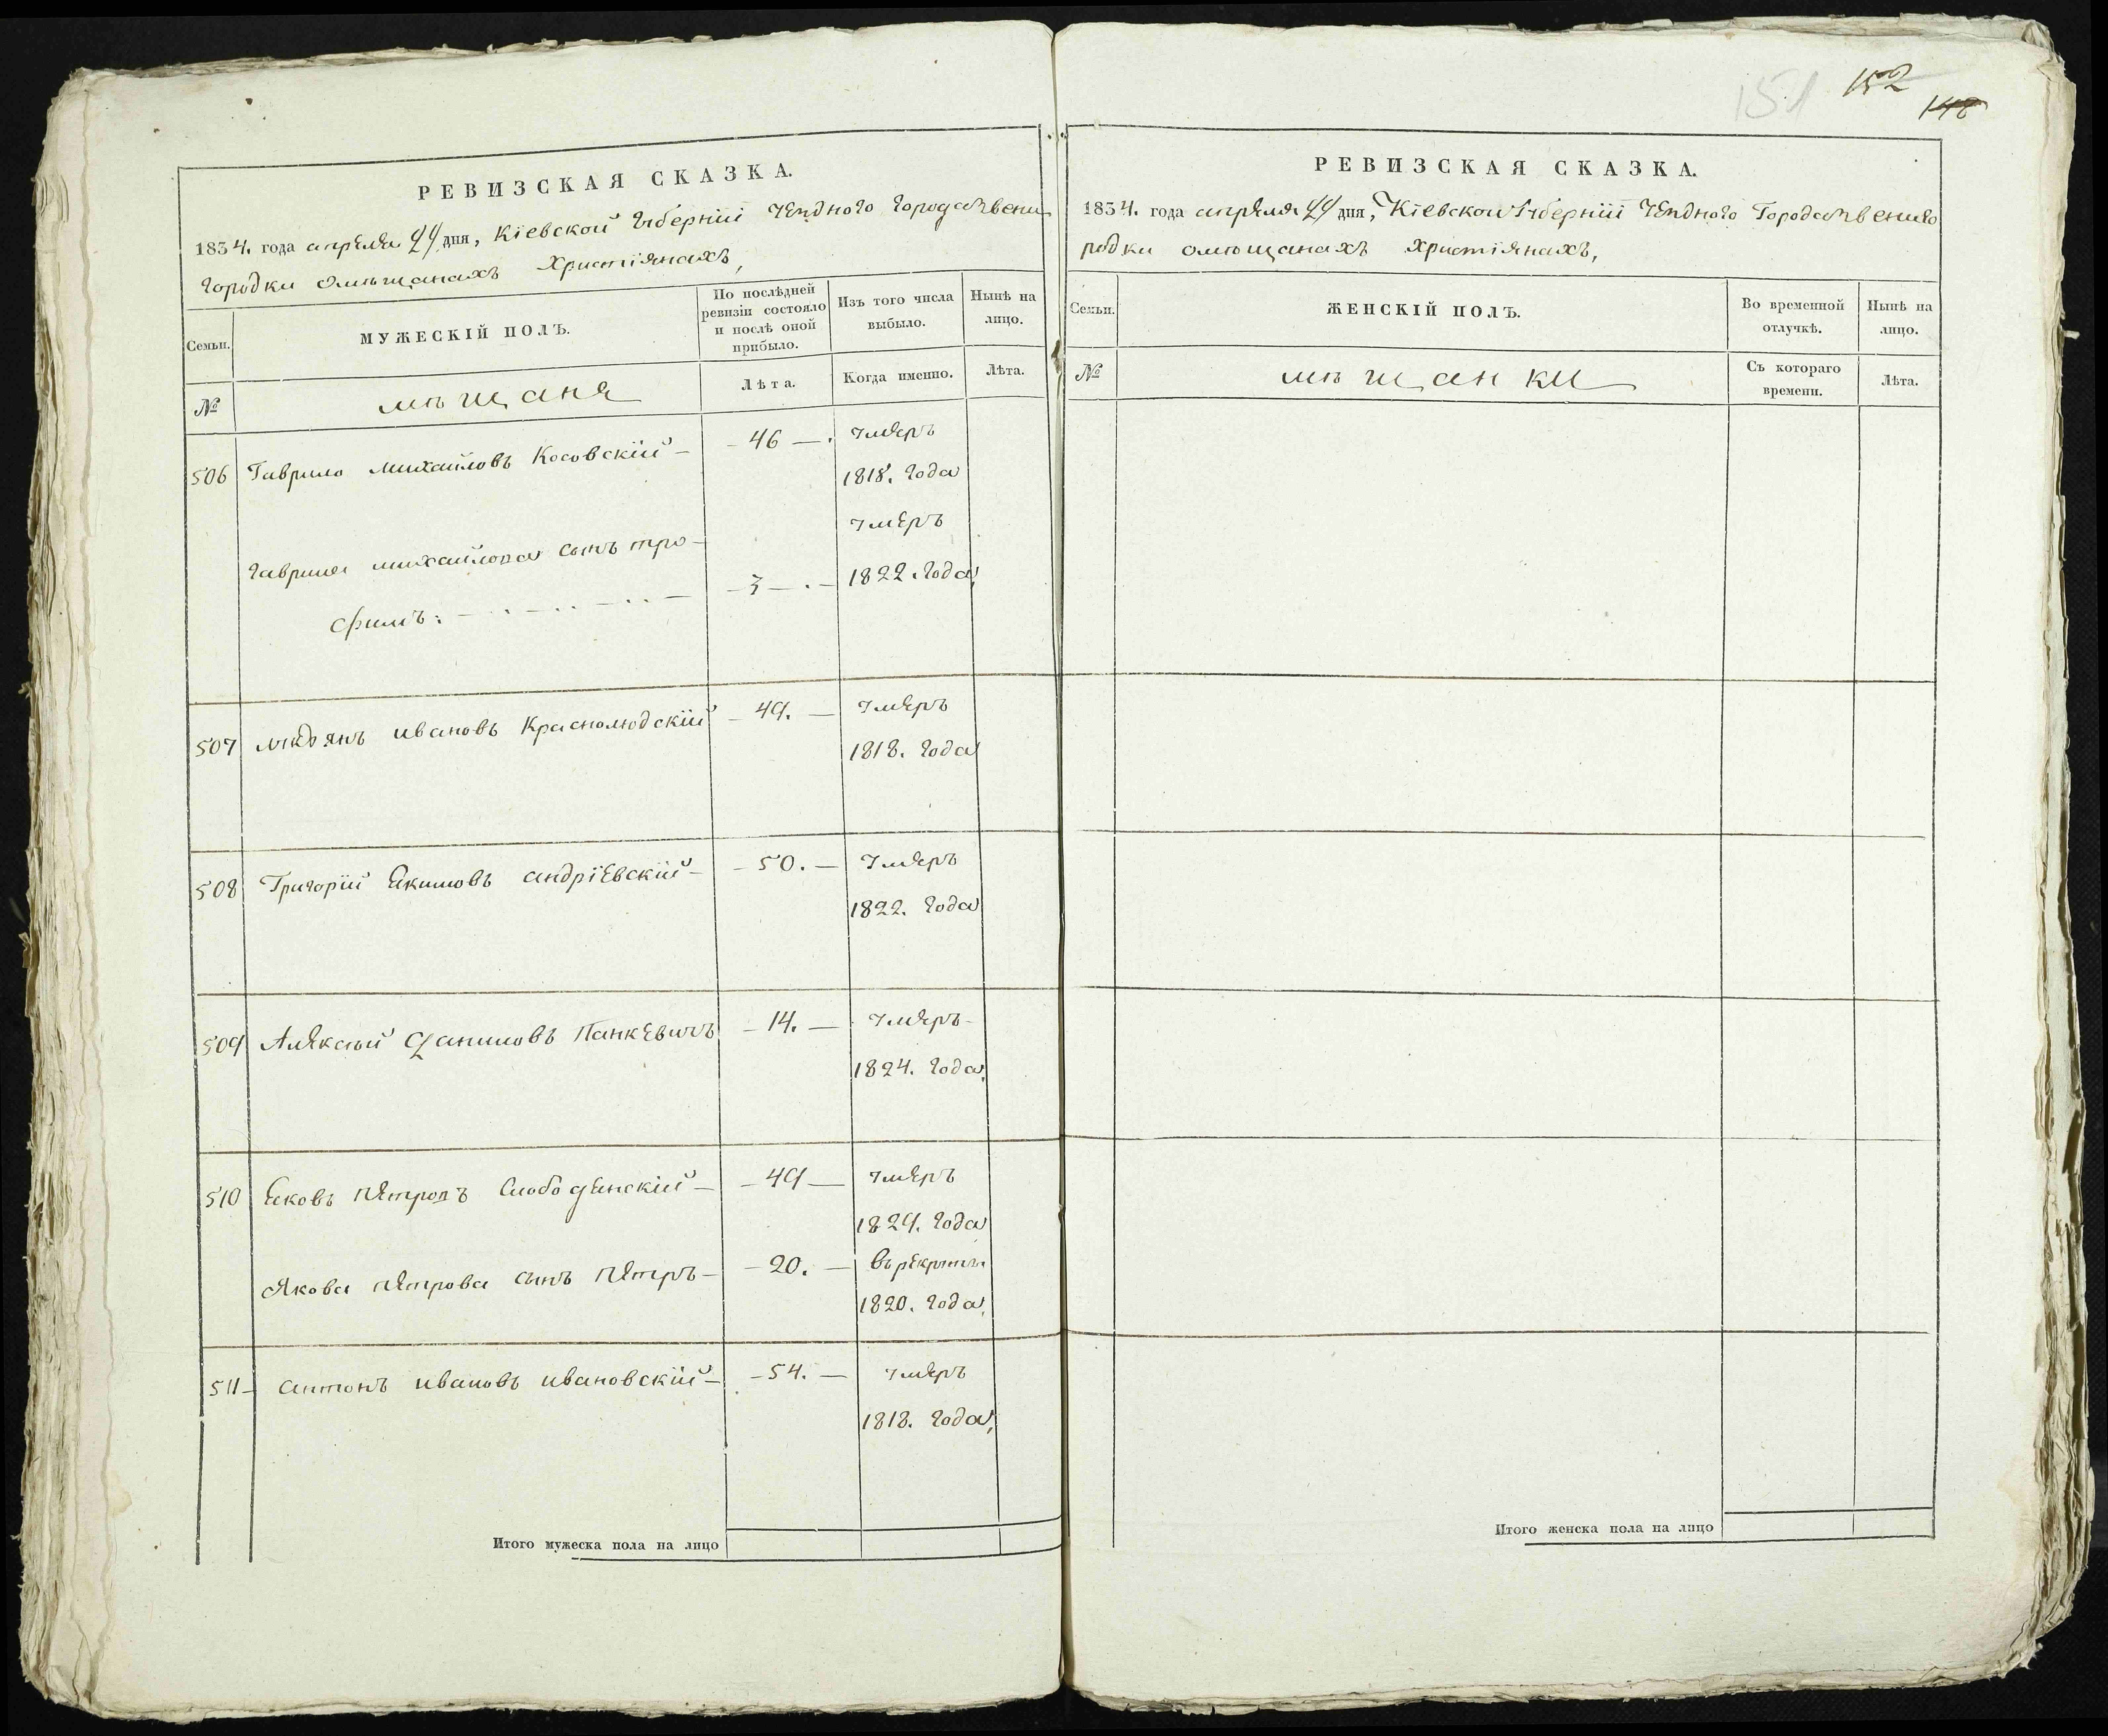 151 152
148
РЕВИЗСКАЯ СКАЗКА.
1834. года апреля 24 дня, Кіевской Губерніи уезднаго Города Звени
городки омѣщанахъ христіянахъ,
Семьи.
МУЖЕСКІЙ ПОЛЪ.
По послѣдней ревизіи состояло и послѣ оной прибыло.
Изъ того числа выбыло.
Нынѣ на лицо.
№
мѣщаня
Лѣта.
Когда именно.
Лѣта.
506 Гаврило михайловъ Косовскій — 46 — умеръ
1818. года
умеръ
гаврила михайлова сынъ тро-
фимъ: — 3 — 1822. года,
507 ивановъ Краснолюдскій — 49. — умеръ
1818. года
508 Григорій Якимовъ андріевскій — 50. — умеръ
1822. года
509 Алексѣй Даниловъ Панкевичъ — 14. — умеръ
1824. года,
510 Яковъ петровъ Слободенскій — 49 — умеръ
1829. года
Якова петрова сынъ петръ — 20. — въ рекруты
1820. года,
511 — антонъ ивановъ ивановскій — 54. — умеръ
1818. года,
Итого мужеска пола на лицо
РЕВИЗСКАЯ СКАЗКА.
1834. года апреля 24 дня, Кіевской Губерніи уезднаго Города Звениго
родки омѣщанахъ христіянахъ,
Семьи.
ЖЕНСКІЙ ПОЛЪ.
Во временной отлучкѣ.
Нынѣ на лицо.
№
мѣщанки
Съ котораго времени.
Лѣта.
Итого женска пола на лицо